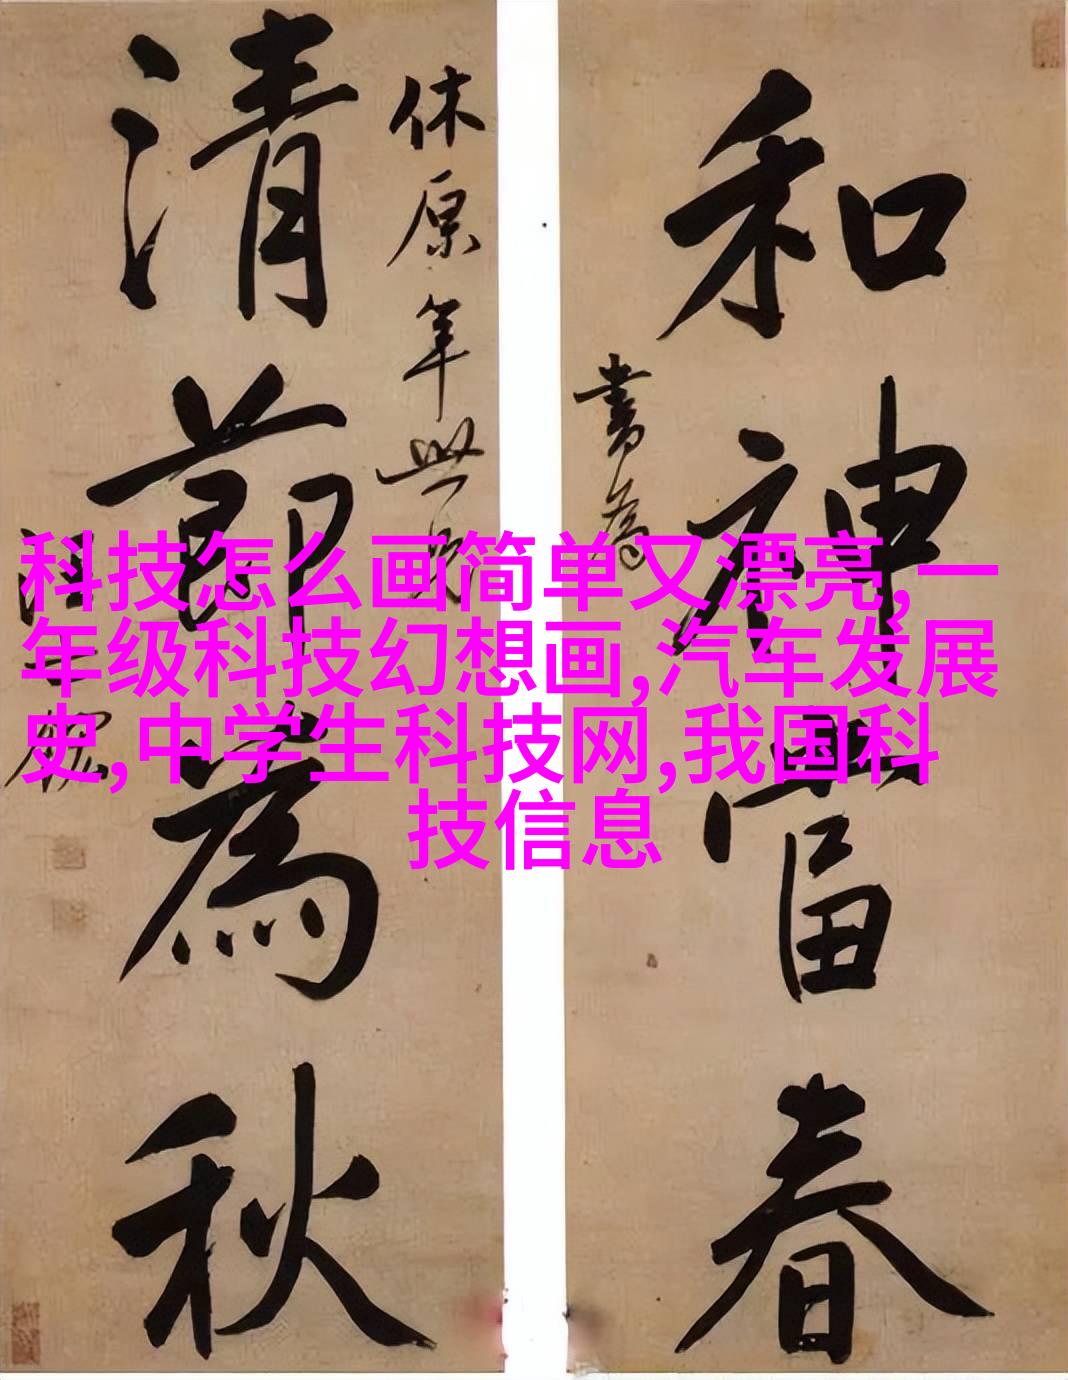 和神當春
書為
休原年世兄
清節為秋
汪士鋐
科技怎么画简单又漂亮,一
年级科技幻想画,汽车发展
史,中学生科技网,我国科
技信息